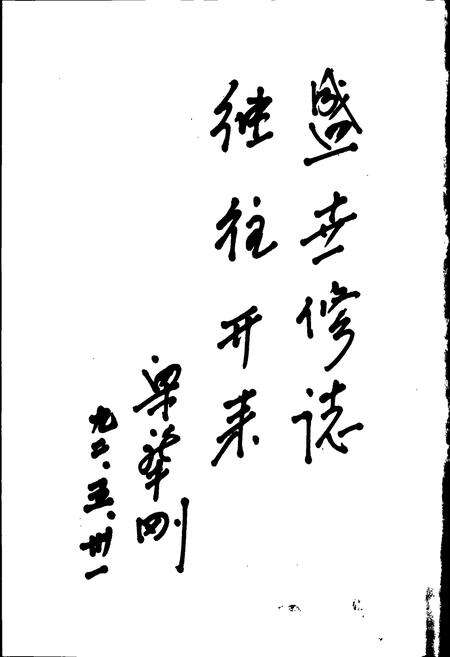 盛世修誌
继往开来
梁華刚
九二、五、卅一